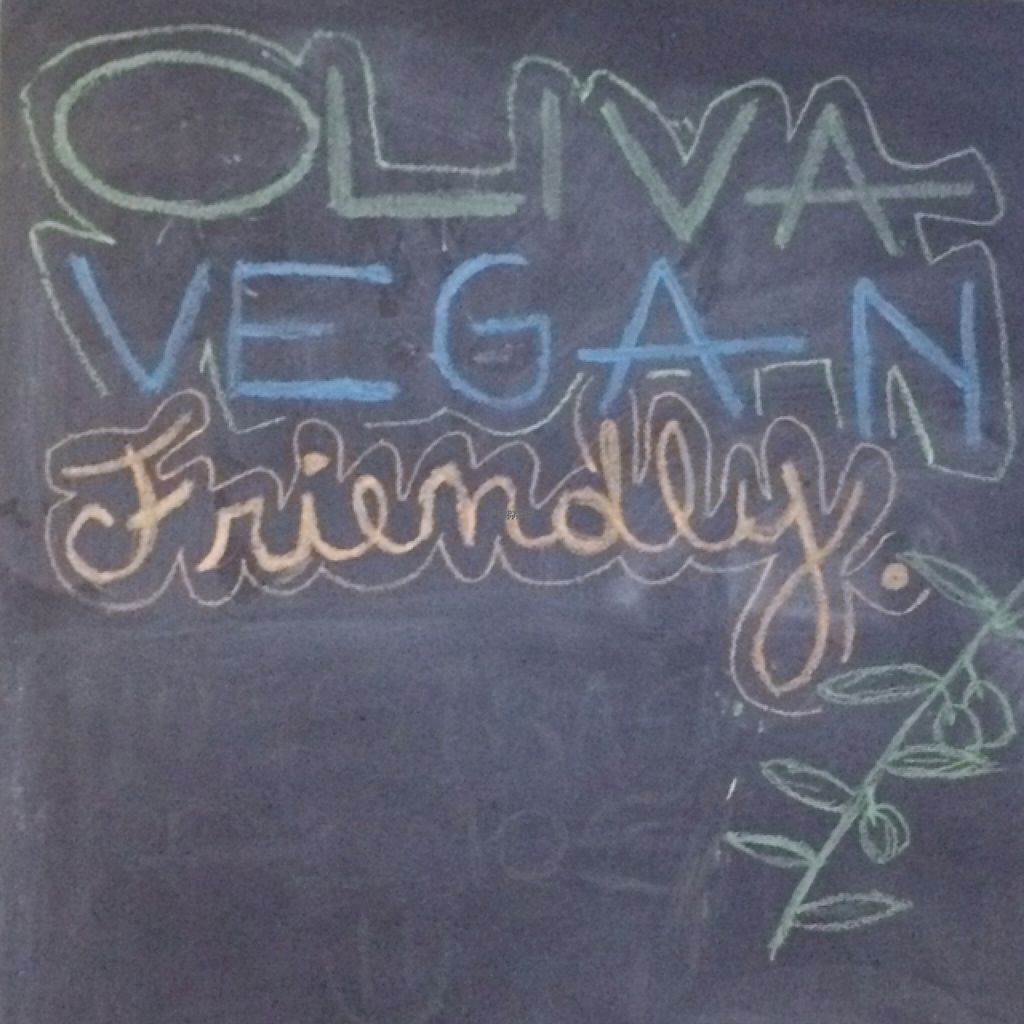 OLIVA
VEGAN
Friendly.